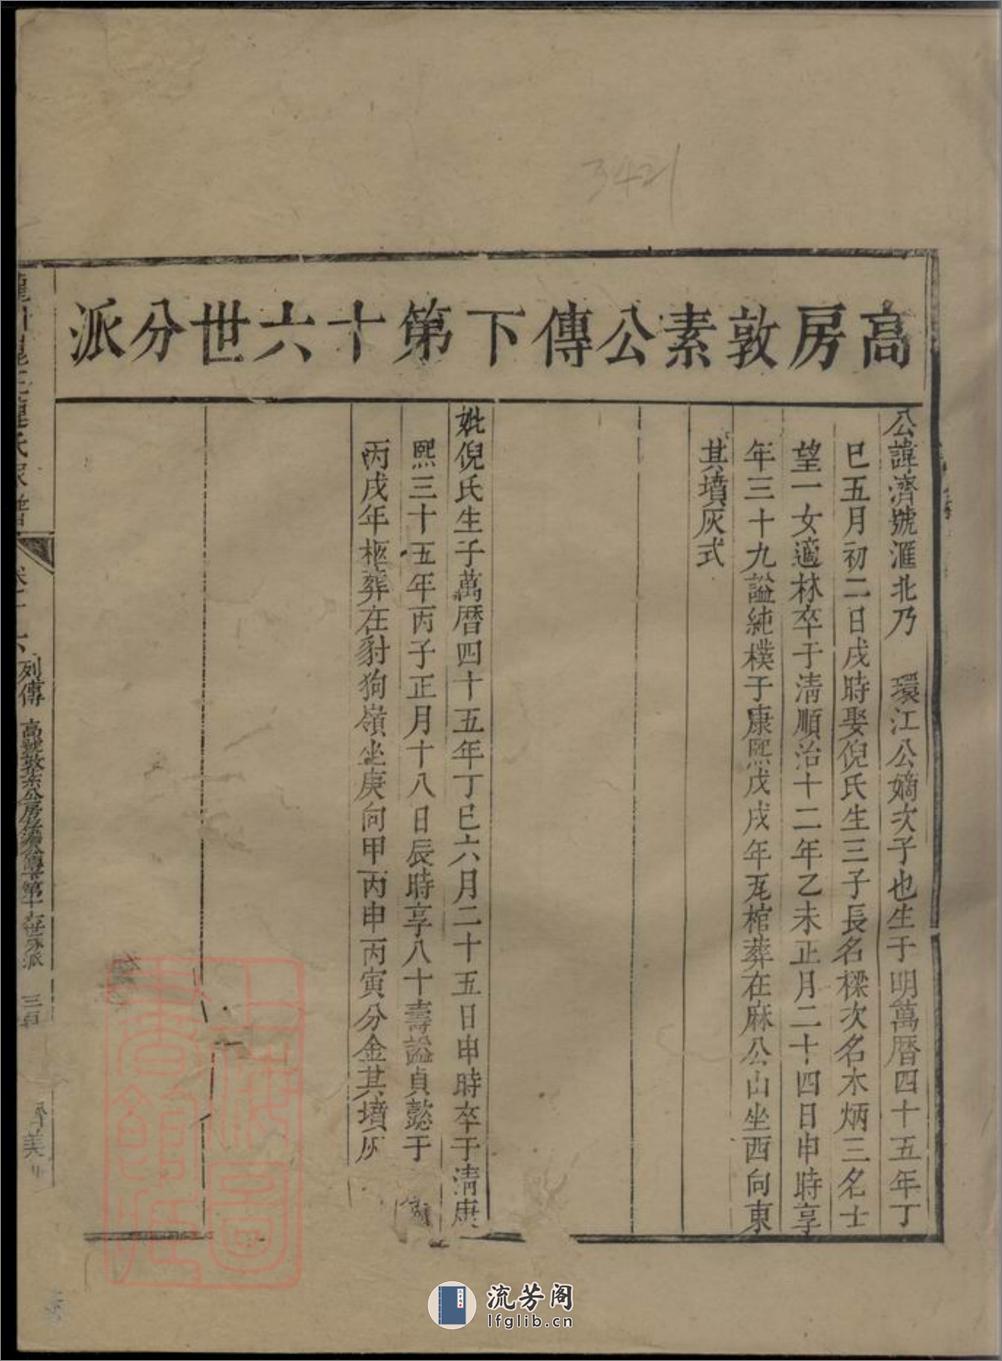 3421
高房敦素公傳下第十六世分派
公諱濟號滙北乃　環江公嫡次子也生于明萬曆四十五年丁
巳五月初二日戌時娶倪氏生三子長名樑次名木炳三名士
望一女適林卒于清順治十二年乙未正月二十四日申時享
年三十九謚純樸于康熙戊戌年瓦棺葬在麻公山坐西向東
其墳灰式
妣倪氏生于萬曆四十五年丁巳六月二十五日申時卒于清康
熙三十五年丙子正月十八日辰時享八十壽謚貞懿于
丙戌年柩葬在豺狗嶺坐庚向甲丙申丙寅分金其墳灰
列傳
流芳阁
lfglib.cn